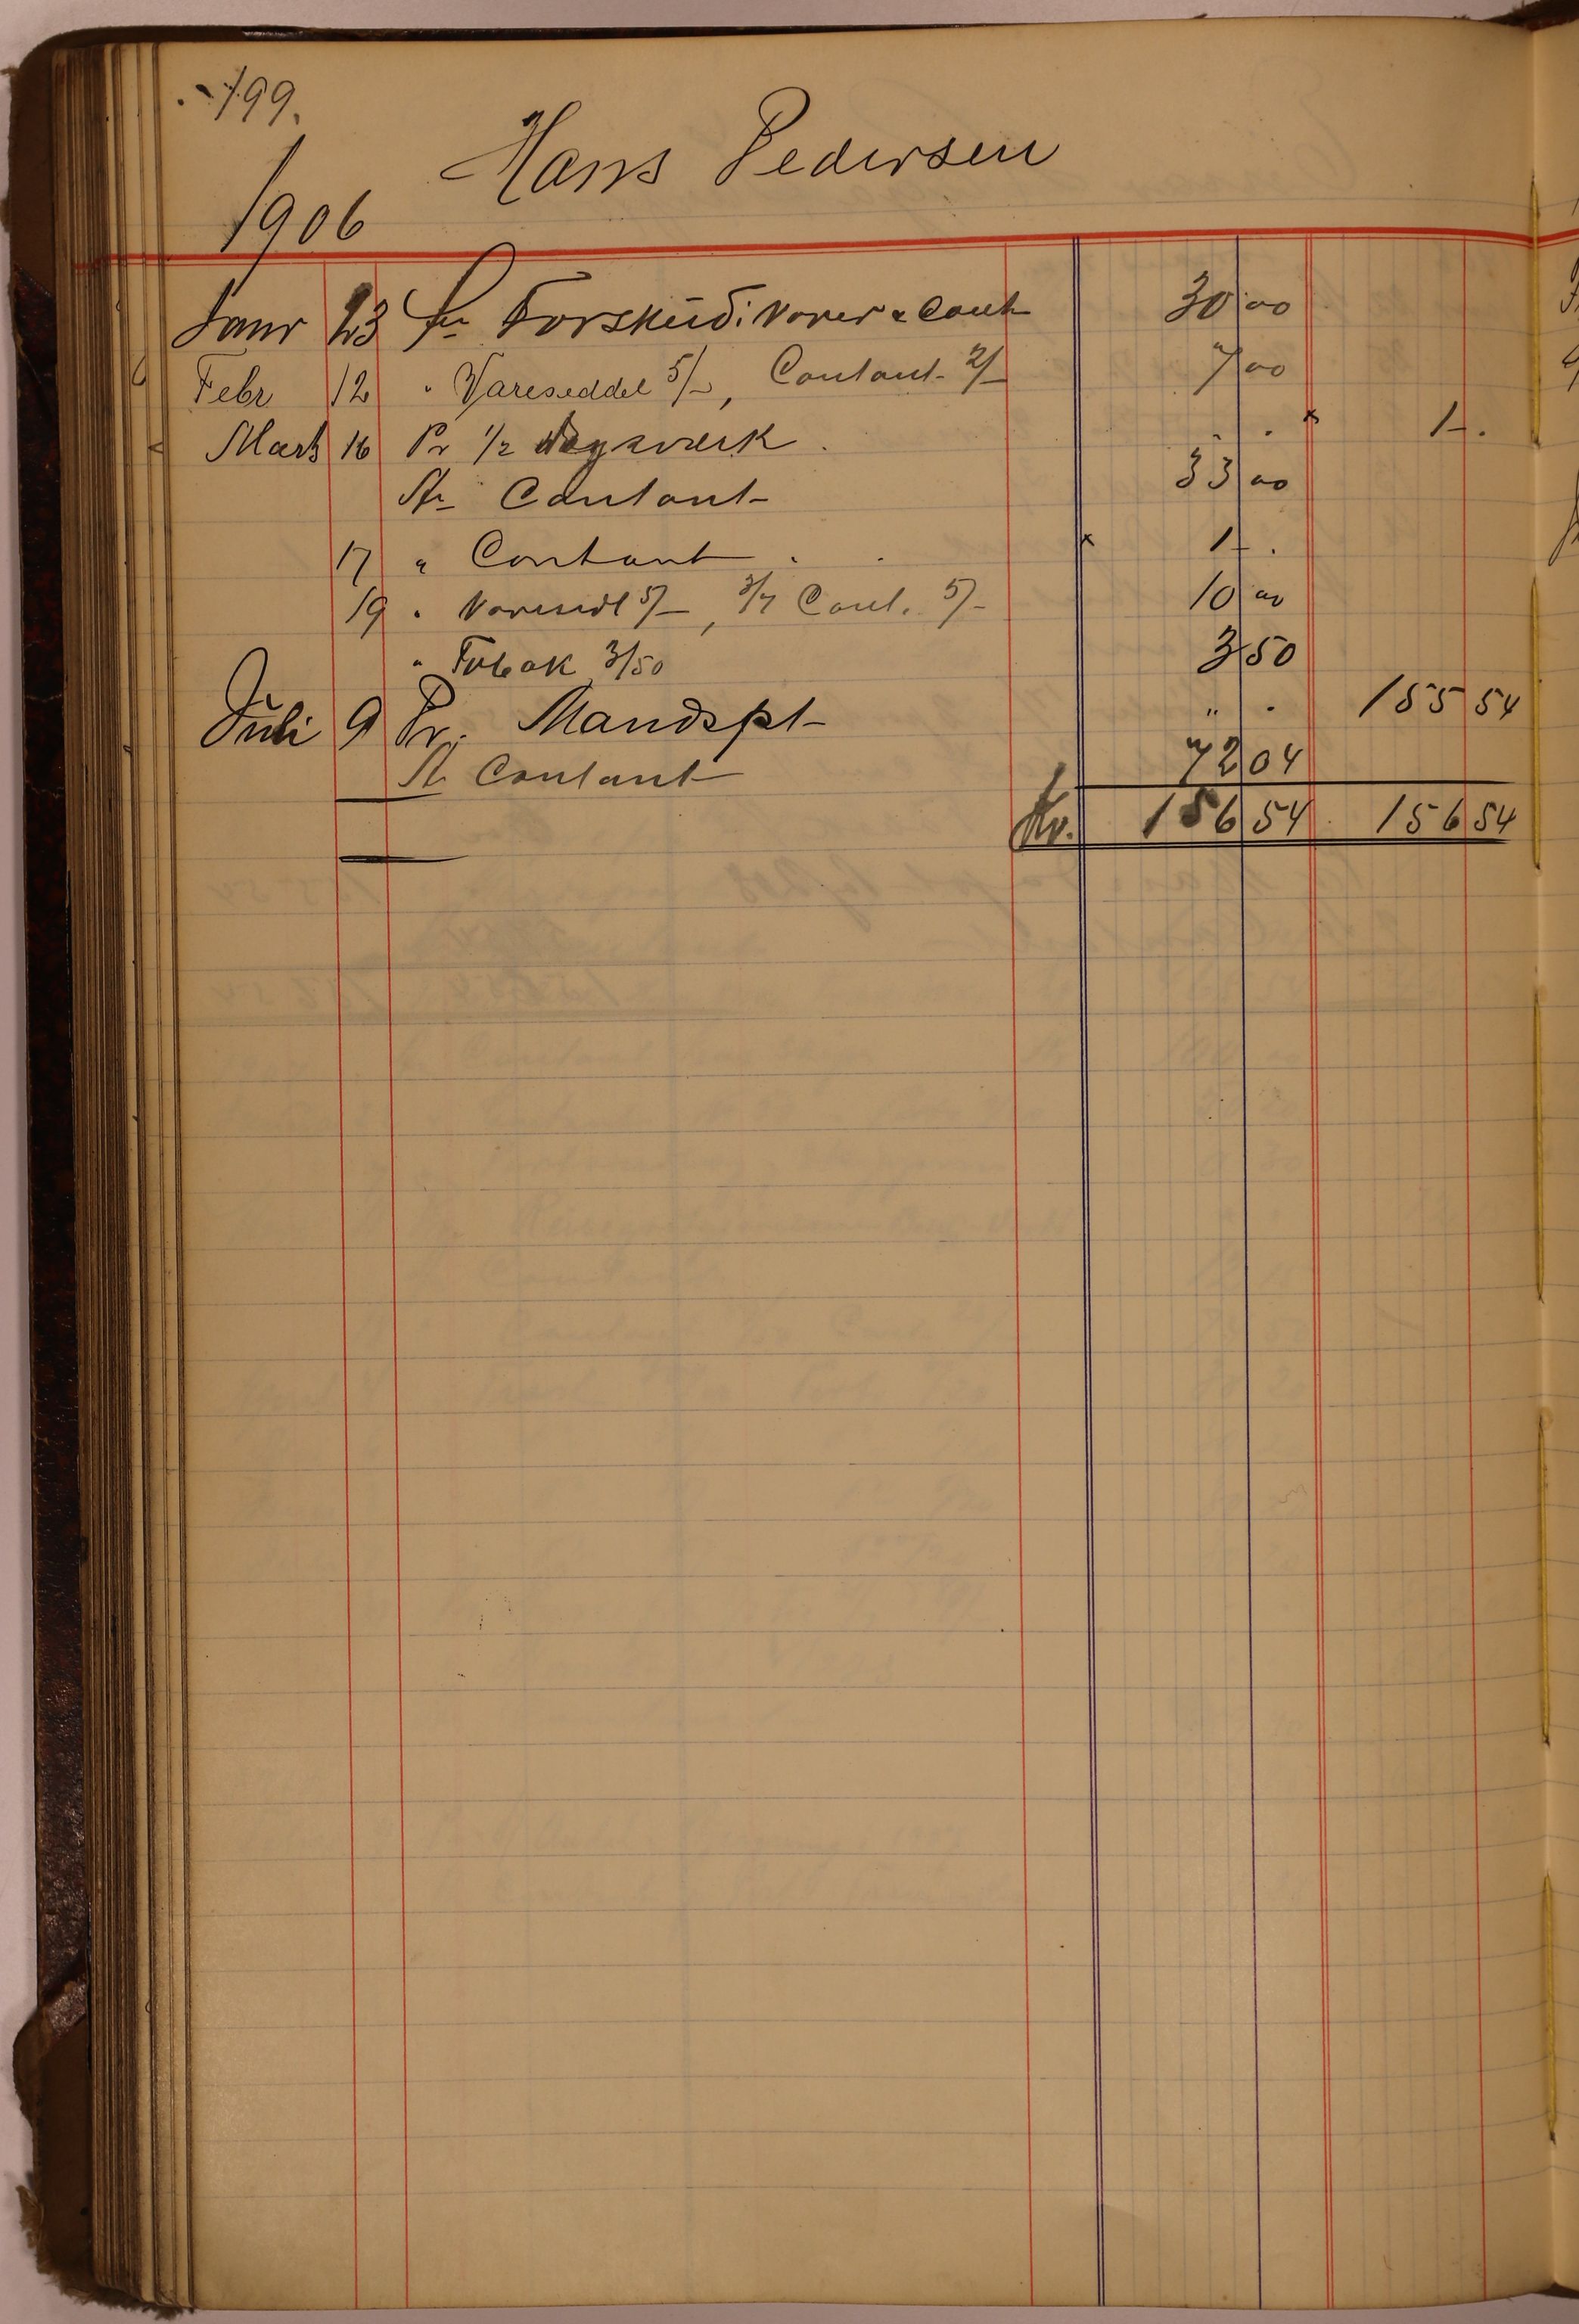 199.
Hans Pedersen
1906
Janr 23 Til Forskud i Varer & Cont 30 00
Febr 12 " Vareseddel 5/-, Contant 2/- 7 00
Marts 16 Pr 1/2 dagsværk . " . x 1 - .
Til Contant 33 00
17 " Contant . . x 1 - .
19 " Varesedl 5/-, Cont. 5/- 10 00
" Tobak 3/50 3 50
Juli 9 Pr. Mandspt " . 155 54
Til Contant 72 04
Kr. 156 54 156 54